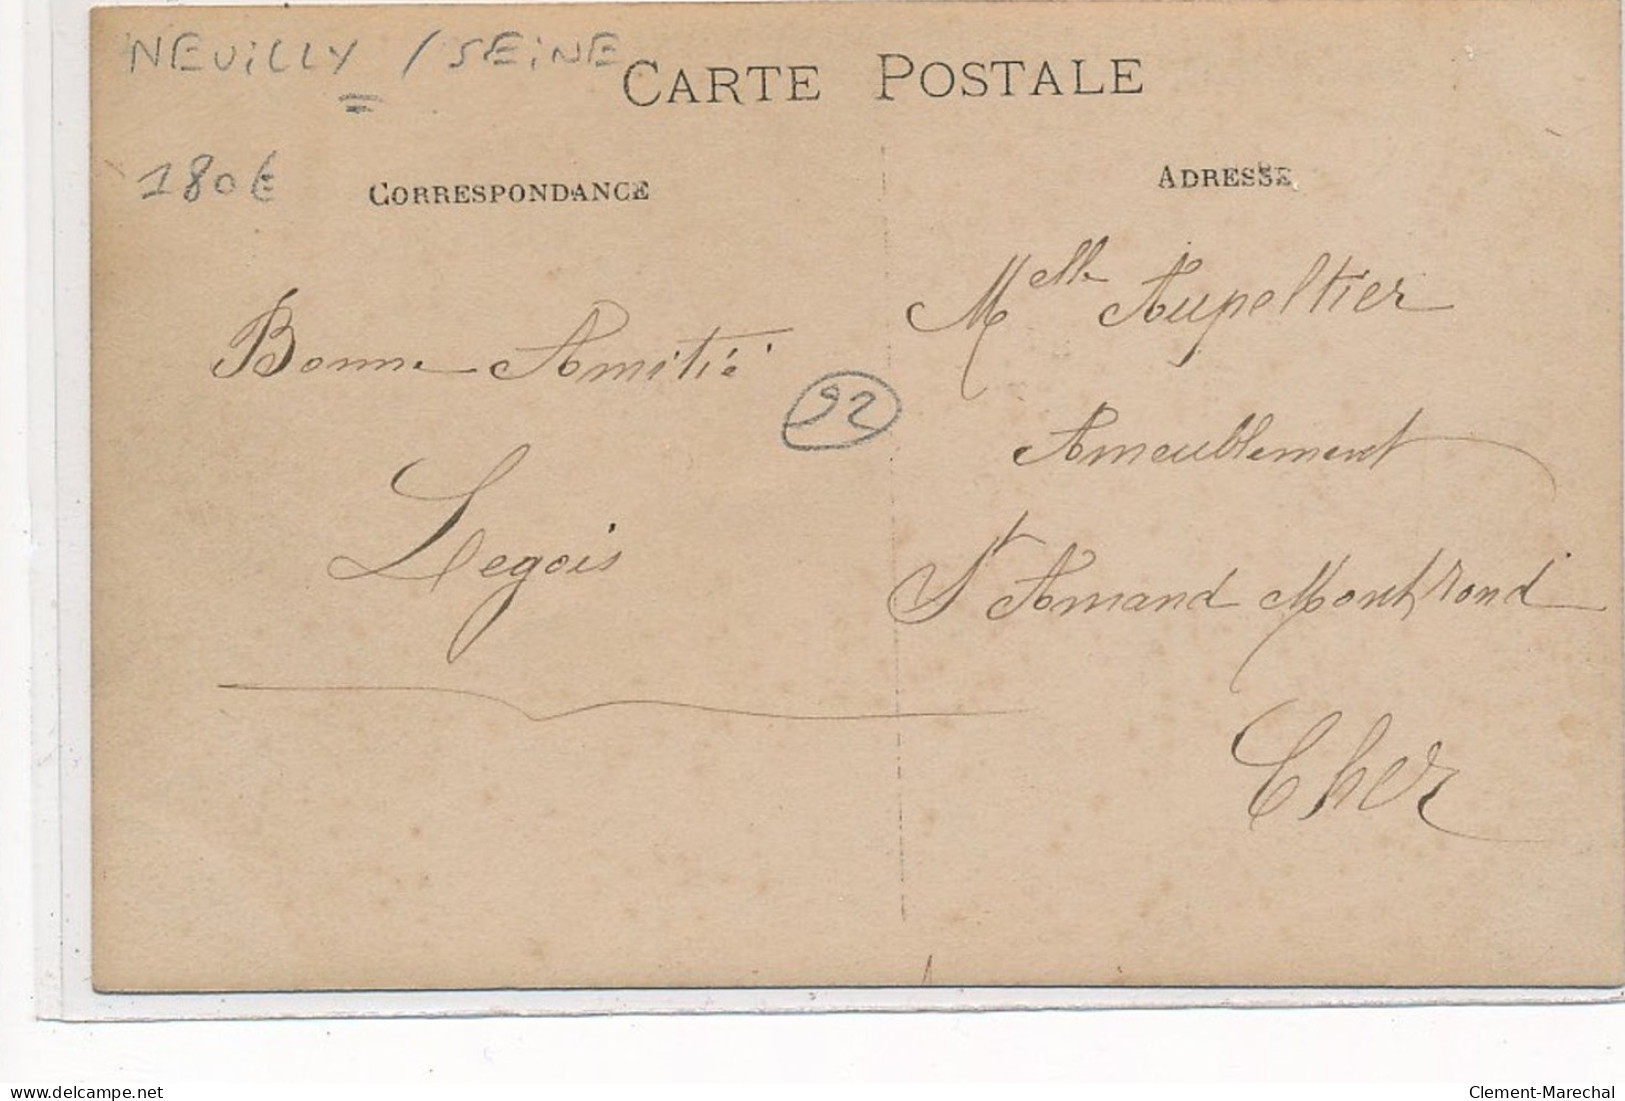 NEUILLY / SEINE
CARTE POSTALE
180€
CORRESPONDANCE
ADRESSE
Bonne Amitié
Legois
92
Melle Aupeltier
Ameublement
St Amand Montrond
Cher
delcampe.net
Clement-Marechal